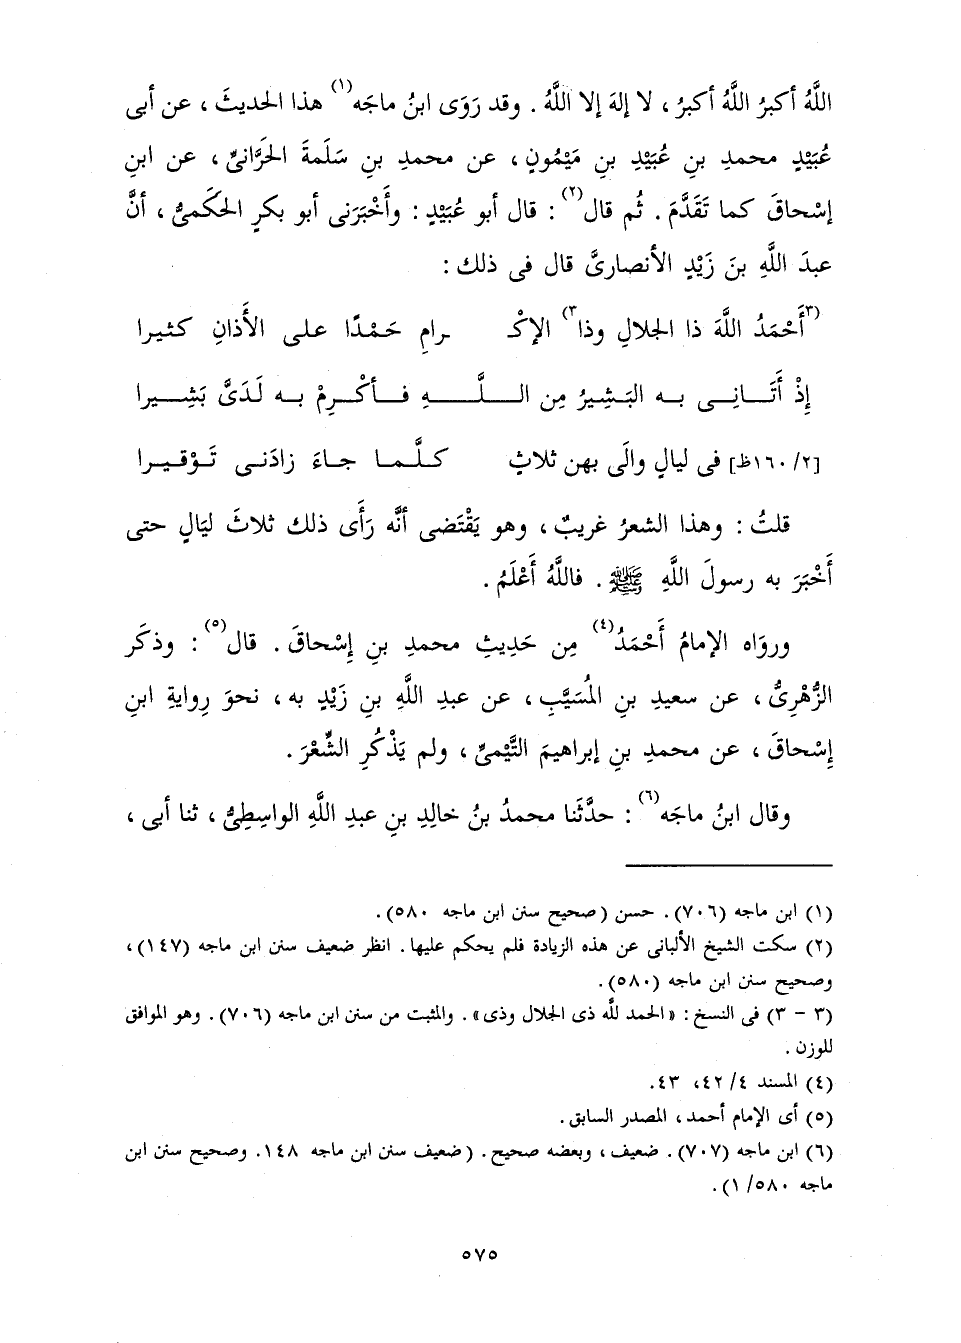 اللَّهُ أكبرُ اللَّهُ أكبرُ ، لا إلهَ إلا اللَّهُ . وقد رَوَى ابنُ ماجَه(١) هذا الحديثَ ، عن أبى
عُبَيْدٍ محمدِ بنِ عُبَيْدِ بنِ مَيْمُونٍ ، عن محمدِ بنِ سَلَمةَ الحَرَّانىِّ ، عن ابنِ
إسْحاقَ كما تَقَدَّمَ . ثُم قال(٢) : قال أبو عُبَيْدٍ : وأَخْبَرَنى أبو بكرٍ الحَكَمىُّ ، أنَّ
عبدَ اللَّهِ بنَ زَيْدٍ الأنصارىَّ قال فى ذلك :
(٣أَحْمَدُ اللَّهَ ذا الجلالِ وذا٣) الإكْـ ـرامِ حَمْدًا على الأَذانِ كثيرا
إذْ أَتَـانِـى بـه البَشِيرُ مِن الـلَّـهِ فـأكْـرِمْ بـه لَدَىَّ بَشِـيرا
[٢/ ١٦٠ظ] فى ليالٍ والَى بهن ثلاثٍ كـلَّـمـا جـاءَ زادَنـى تَـوْقـيـرا
قلتُ : وهذا الشعرُ غريبٌ ، وهو يَقْتَضى أنَّه رَأَى ذلك ثلاثَ ليَالٍ حتى
أَخْبَرَ به رسولَ اللَّهِ ﷺ . فاللَّهُ أَعْلَمُ .
وروَاه الإمامُ أَحْمَدُ(٤) مِن حَدِيثِ محمدِ بنِ إسْحاقَ . قال(٥) : وذكَر
الزُّهْرِىُّ ، عن سعيدِ بنِ المُسَيَّبِ ، عن عبدِ اللَّهِ بنِ زَيْدٍ به ، نحوَ رِوايةِ ابنِ
إسْحاقَ ، عن محمدِ بنِ إبراهيمَ التَّيْمىِّ ، ولم يَذْكُرِ الشِّعْرَ .
وقال ابنُ ماجَه(٦) : حدَّثَنا محمدُ بنُ خالِدِ بنِ عبدِ اللَّهِ الواسِطِىُّ ، ثنا أبى ،
(١) ابن ماجه (٧٠٦) . حسن (صحيح سنن ابن ماجه ٥٨٠) .
(٢) سكت الشيخ الألبانى عن هذه الزيادة فلم يحكم عليها . انظر ضعيف سنن ابن ماجه (١٤٧) ،
وصحيح سنن ابن ماجه (٥٨٠) .
(٣ - ٣) فى النسخ : «الحمد للَّه ذى الجلال وذى» . والمثبت من سنن ابن ماجه (٧٠٦) . وهو الموافق
للوزن .
(٤) المسند ٤/ ٤٢، ٤٣ .
(٥) أى الإمام أحمد ، المصدر السابق .
(٦) ابن ماجه (٧٠٧) . ضعيف ، وبعضه صحيح . (ضعيف سنن ابن ماجه ١٤٨ . وصحيح سنن ابن
ماجه ٥٨٠/ ١) .
٥٧٥